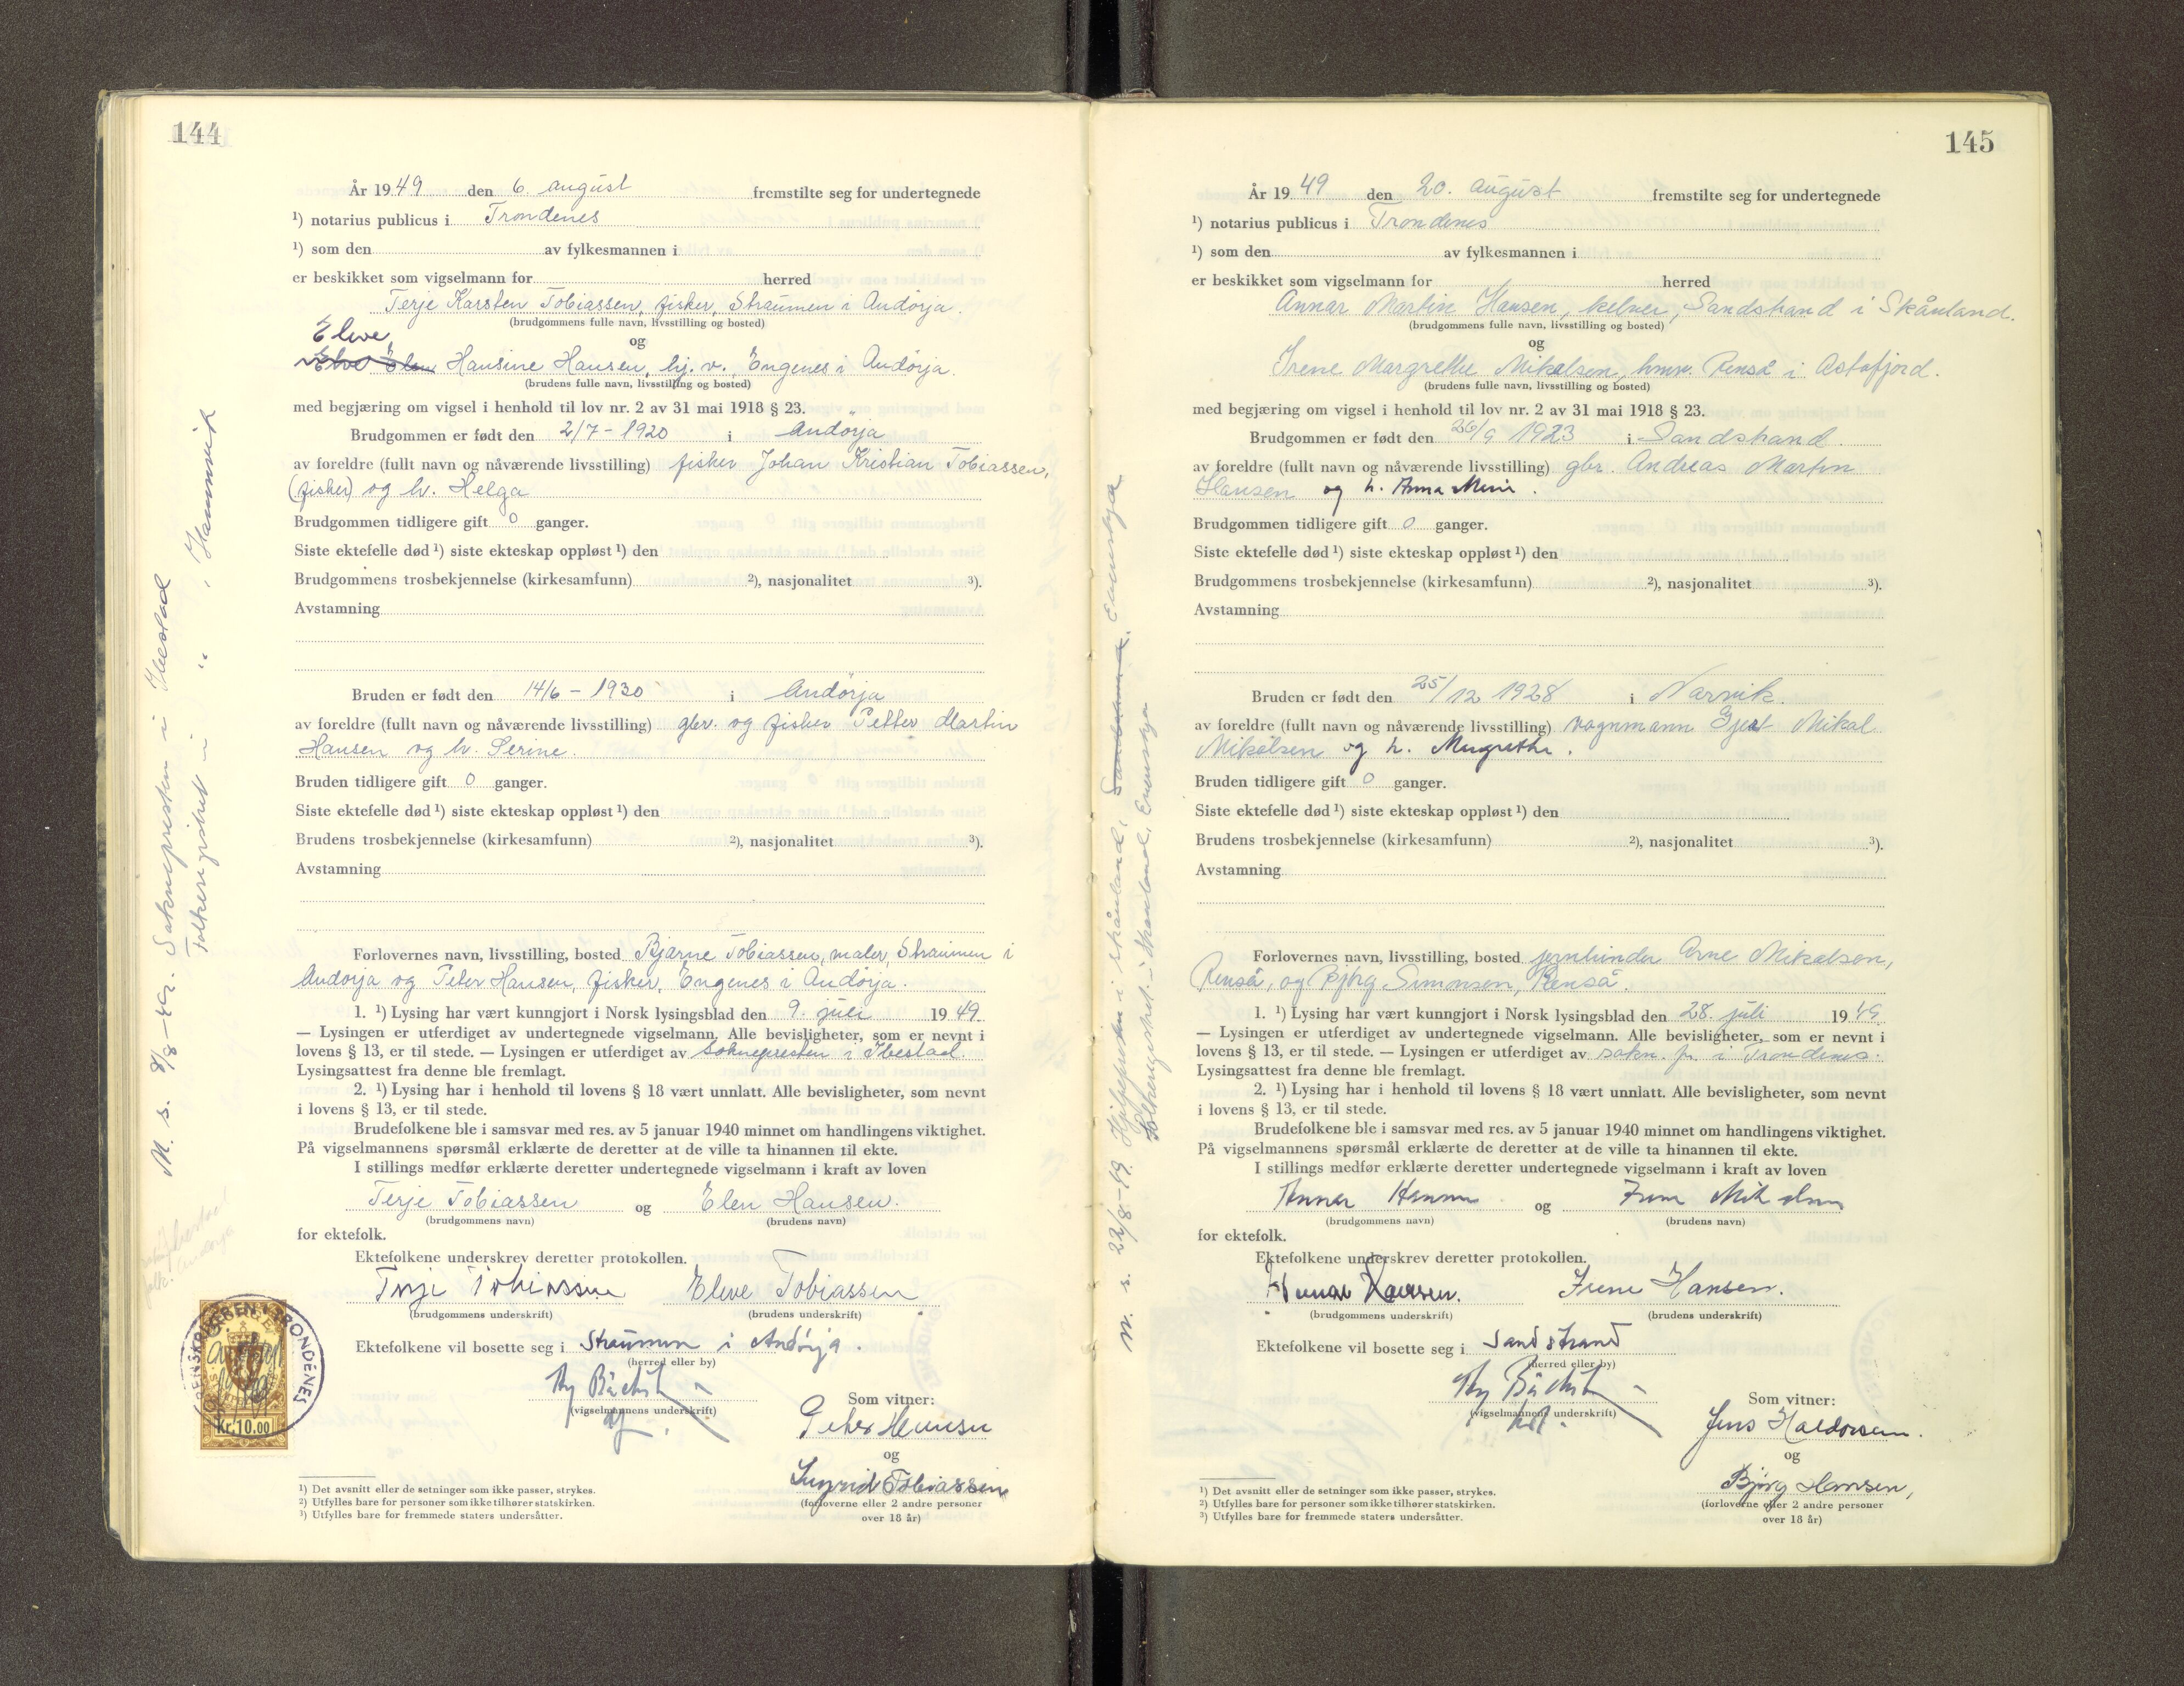 144
År 1949 den 6. august fremstilte seg for undertegnede
¹) notarius publicus i Trondenes
¹) som den av fylkesmannen i
er beskikket som vigselmann for herred
Terje Karsten Tobiassen, fisker, Straumen i Andørja.
(brudgommens fulle navn, livsstilling og bosted)
Elve
og
Elen Hansine Hansen, hj. v., Engenes i Andørja.
(brudens fulle navn, livsstilling og bosted)
med begjæring om vigsel i henhold til lov nr. 2 av 31 mai 1918 § 23.
Brudgommen er født den 2/7 - 1920 i Andørja
av foreldre (fullt navn og nåværende livsstilling) fisker Johan Kristian Tobiassen,
(fisker) og h. Helga
Brudgommen tidligere gift 0 ganger.
Siste ektefelle død ¹) siste ekteskap oppløst ¹) den
Brudgommens trosbekjennelse (kirkesamfunn) ²), nasjonalitet ³).
Avstamning
Bruden er født den 14/6 - 1930 i Andørja
av foreldre (fullt navn og nåværende livsstilling) gbr. og fisker Petter Martin
Hansen og h. Serine.
Bruden tidligere gift 0 ganger.
Siste ektefelle død ¹) siste ekteskap oppløst ¹) den
Brudens trosbekjennelse (kirkesamfunn) ²), nasjonalitet ³).
Avstamning
Forlovernes navn, livsstilling, bosted Bjarne Tobiassen, maler, Straumen i
Andørja og Peter Hansen, fisker, Engenes i Andørja.
1. ¹) Lysing har vært kunngjort i Norsk lysingsblad den 9. juli 1949.
— Lysingen er utferdiget av undertegnede vigselmann. Alle bevisligheter, som er nevnt i
lovens § 13, er til stede. — Lysingen er utferdiget av Soknepresten i Ibestad.
Lysingsattest fra denne ble fremlagt.
2. ¹) Lysing har i henhold til lovens § 18 vært unnlatt. Alle bevisligheter, som nevnt
i lovens § 13, er til stede.
Brudefolkene ble i samsvar med res. av 5 januar 1940 minnet om handlingens viktighet.
På vigselmannens spørsmål erklærte de deretter at de ville ta hinannen til ekte.
I stillings medfør erklærte deretter undertegnede vigselmann i kraft av loven
Terje Tobiassen og Elen Hansen.
(brudgommens navn) (brudens navn)
for ektefolk.
Ektefolkene underskrev deretter protokollen.
Terje Tobiassen Elve Tobiassen
(brudgommens underskrift) (brudens underskrift)
Ektefolkene vil bosette seg i Straumen i Andørja.
(herred eller by)
(vigselmannens underskrift)
Som vitner:
Peter Hansen
og
Ingrid Tobiassen
(forloverne eller 2 andre personer
over 18 år)
¹) Det avsnitt eller de setninger som ikke passer, strykes.
²) Utfylles bare for personer som ikke tilhører statskirken.
³) Utfylles bare for fremmede staters undersåtter.
M. s. 8/8-49. Soknepresten i Ibestad
Folkeregistret i " , Hamnvik
SORENSKRIVEREN I TRONDENES
Kr. 10.00
145
År 1949 den 20. august fremstilte seg for undertegnede
¹) notarius publicus i Trondenes
¹) som den av fylkesmannen i
er beskikket som vigselmann for herred
Annar Martin Hansen, kelner, Sandstrand i Skånland.
(brudgommens fulle navn, livsstilling og bosted)
og
Irene Margrethe Mikalsen, hmv. Renså i Astafjord.
(brudens fulle navn, livsstilling og bosted)
med begjæring om vigsel i henhold til lov nr. 2 av 31 mai 1918 § 23.
Brudgommen er født den 26/9 1923 i Sandstrand.
av foreldre (fullt navn og nåværende livsstilling) gbr. Andreas Martin
Hansen og h. Anna Marie.
Brudgommen tidligere gift 0 ganger.
Siste ektefelle død ¹) siste ekteskap oppløst ¹) den
Brudgommens trosbekjennelse (kirkesamfunn) ²), nasjonalitet ³).
Avstamning
Bruden er født den 25/12 1928 i Narvik.
av foreldre (fullt navn og nåværende livsstilling) vognmann Gjert Mikal
Mikalsen og h. Margrethe.
Bruden tidligere gift 0 ganger.
Siste ektefelle død ¹) siste ekteskap oppløst ¹) den
Brudens trosbekjennelse (kirkesamfunn) ²), nasjonalitet ³).
Avstamning
Forlovernes navn, livsstilling, bosted jernbinder Arne Mikalsen,
Renså, og Bjørg Simonsen, Renså.
1. ¹) Lysing har vært kunngjort i Norsk lysingsblad den 28. juli 1949
— Lysingen er utferdiget av undertegnede vigselmann. Alle bevisligheter, som er nevnt i
lovens § 13, er til stede. — Lysingen er utferdiget av sokn. pr. i Trondenes.
Lysingsattest fra denne ble fremlagt.
2. ¹) Lysing har i henhold til lovens § 18 vært unnlatt. Alle bevisligheter, som nevnt
i lovens § 13, er til stede.
Brudefolkene ble i samsvar med res. av 5 januar 1940 minnet om handlingens viktighet.
På vigselmannens spørsmål erklærte de deretter at de ville ta hinannen til ekte.
I stillings medfør erklærte deretter undertegnede vigselmann i kraft av loven
Annar Hansen og Irene Mikalsen
(brudgommens navn) (brudens navn)
for ektefolk.
Ektefolkene underskrev deretter protokollen.
Annar Hansen. Irene Hansen.
(brudgommens underskrift) (brudens underskrift)
Ektefolkene vil bosette seg i Sandstrand
(herred eller by)
(vigselmannens underskrift)
Som vitner:
Jens Haldorsen.
og
Bjørg Hansen,
(forloverne eller 2 andre personer
over 18 år)
¹) Det avsnitt eller de setninger som ikke passer, strykes.
²) Utfylles bare for personer som ikke tilhører statskirken.
³) Utfylles bare for fremmede staters undersåtter.
M. s. 22/8-49. Hjelpepresten i Skånland, Evenskjer
Folkeregistret i Skånland, Evenskjer